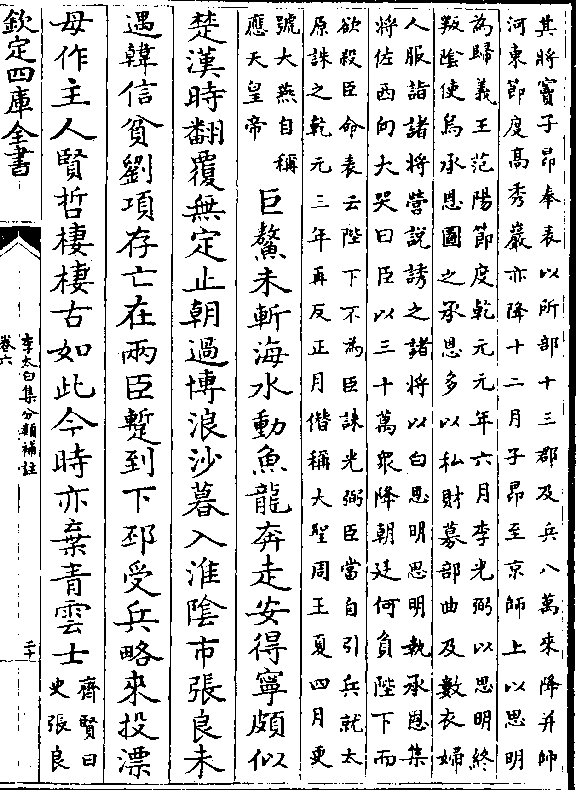 其將竇子昂奉表以所部十三郡及兵八萬來降并帥
河東節度高秀巖亦降十二月子昂至京師上以思明
為歸義王范陽節度乾元元年六月李光弼以思明終
叛陰使烏承恩圖之承恩多以私財募部曲及數衣婦
人服詣諸將營說誘之諸將以白思明思明執承恩集
將佐西向大哭曰臣以三十萬衆降朝廷何負陛下而
欲殺臣命表云陛下不為臣誅光弼臣當自引兵就太
原誅之乾元三年再反正月僭稱大聖周王夏四月更
號大燕自稱
應天皇帝
巨鰲未斬海水動魚龍奔走安得寧頗似
楚漢時翻覆無定止朝過博浪沙暮入淮陰市張良未
遇韓信貧劉項存亡在兩臣蹔到下邳受兵略來投漂
母作主人賢哲棲棲古如此今時亦棄青雲士
齊賢曰
史張良
欽定四庫全書
李太白集分類補註
卷六
二十